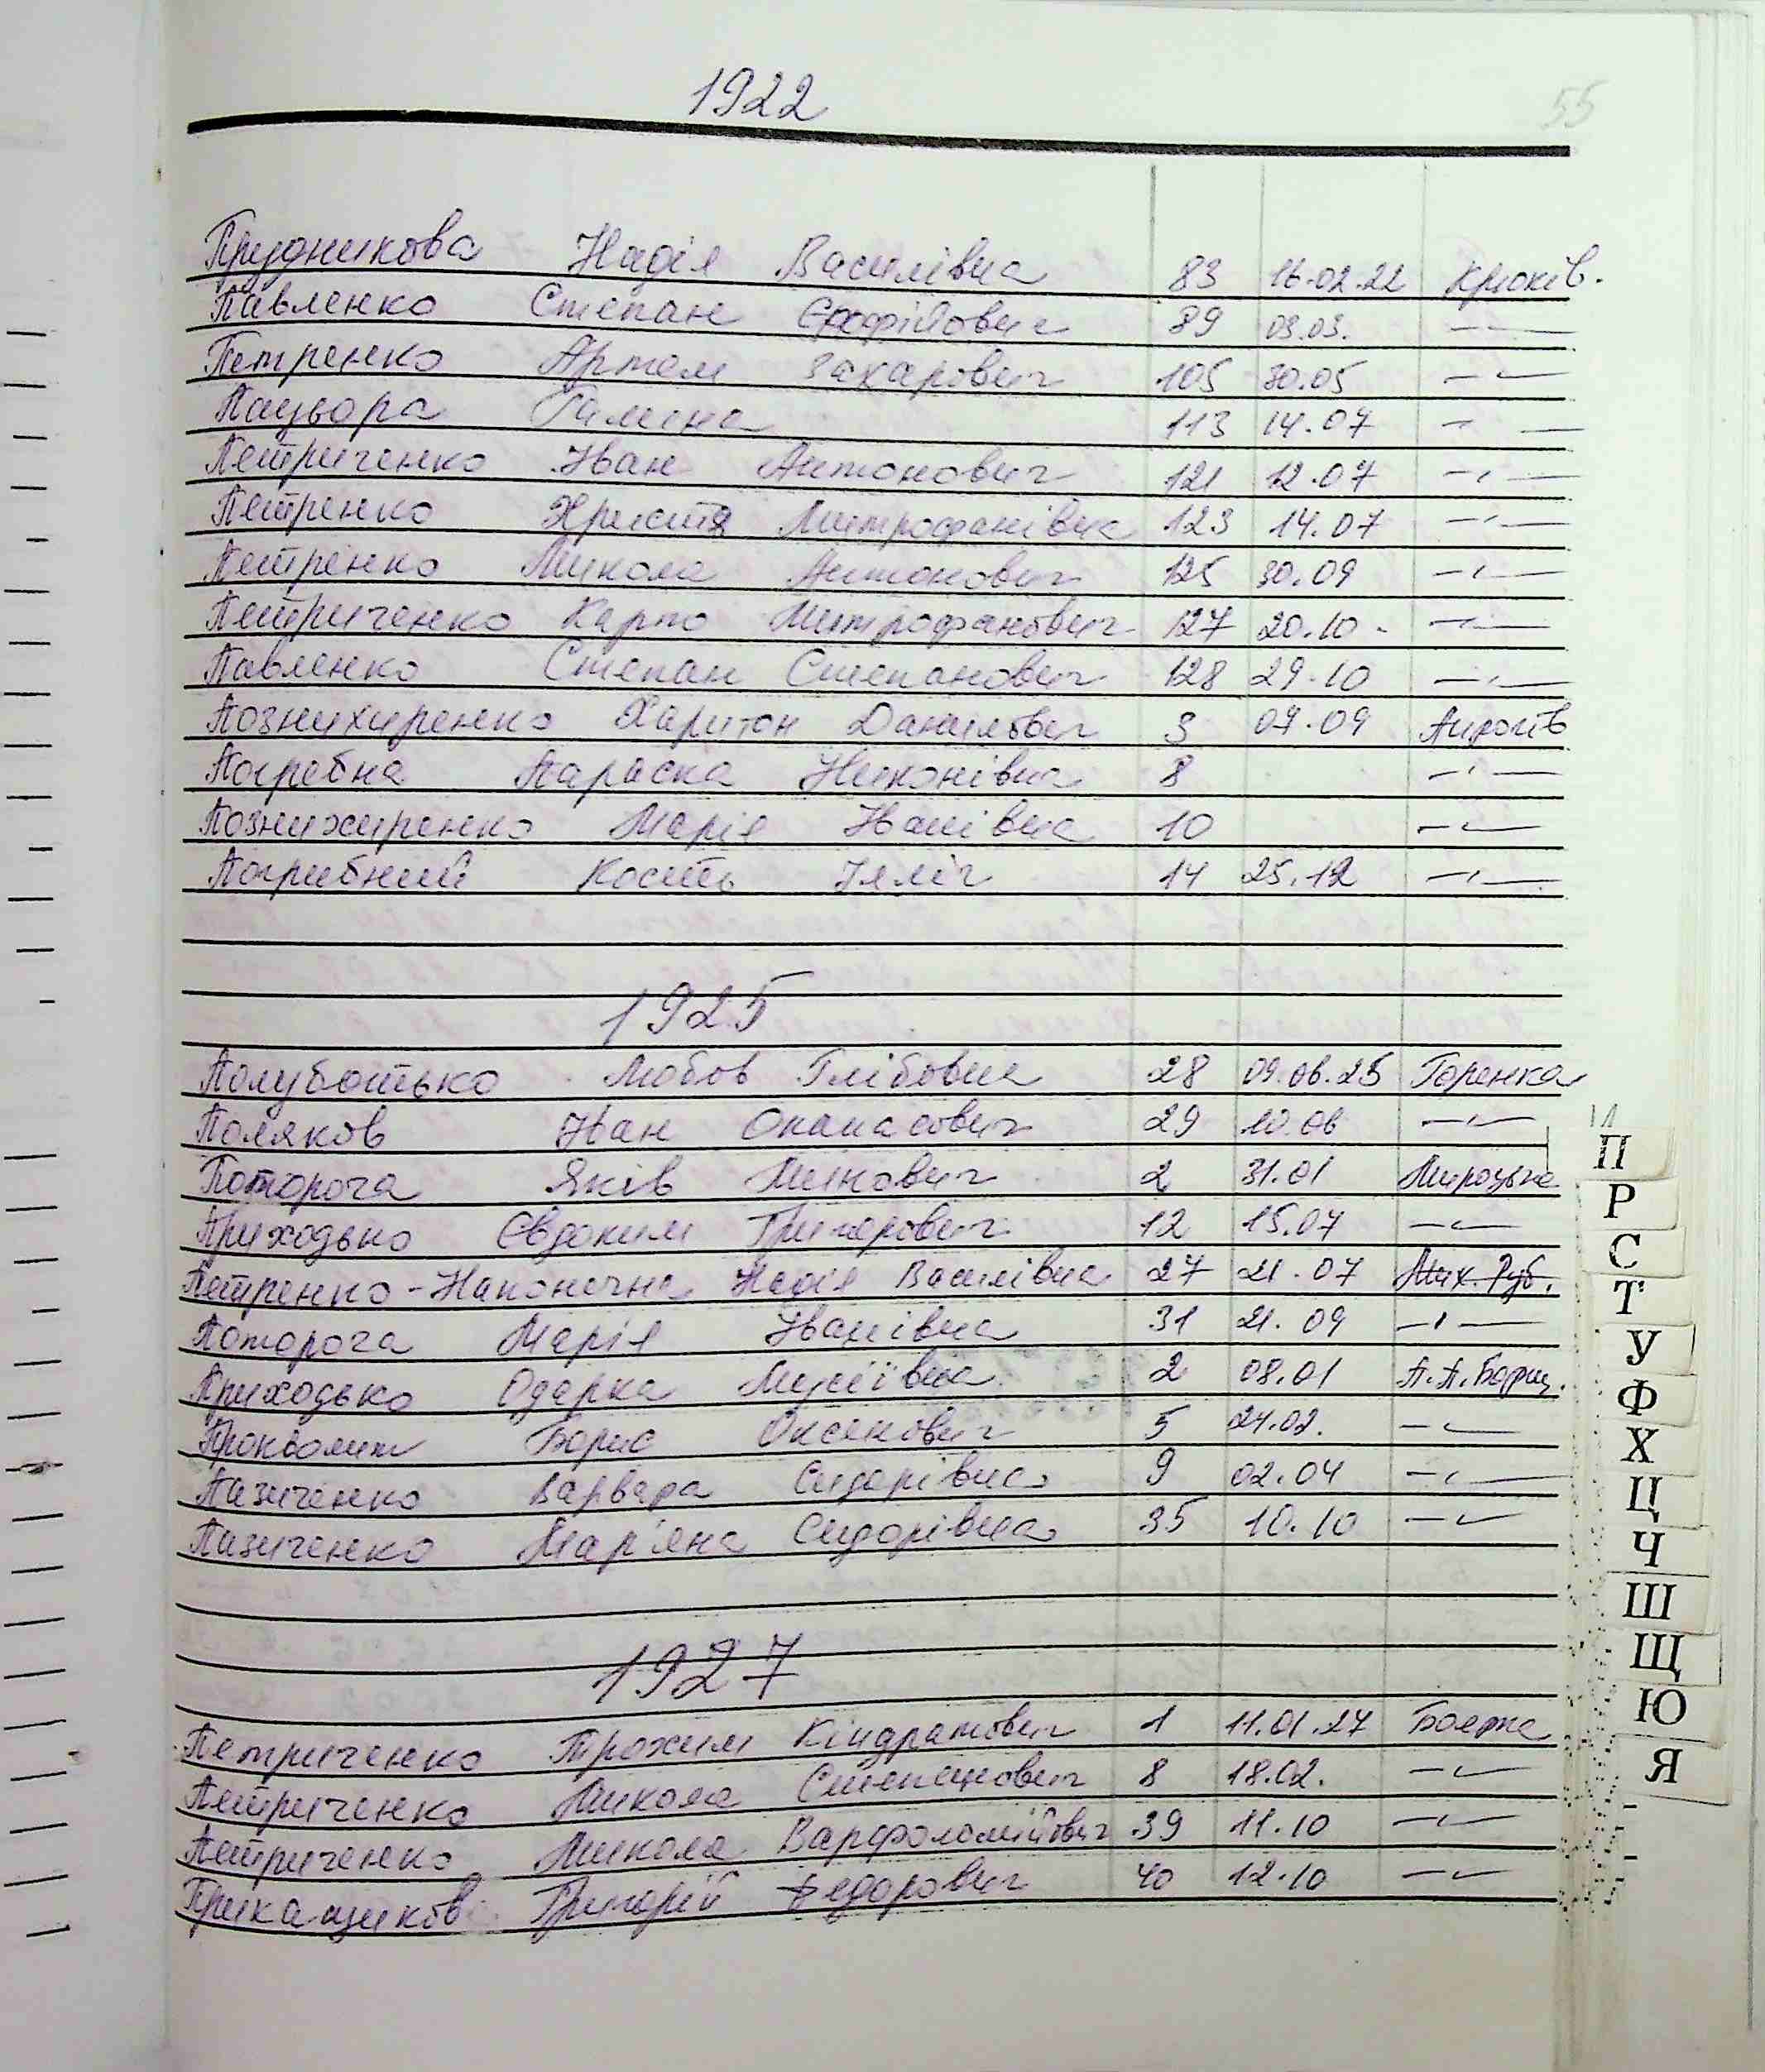 1922
55
Прудникова Надія Василівна 83 16.02.22 Крюків.
Павленко Степан Єрофійович 89 03.03. —"—
Петренко Артем Захарович 105 30.05 —"—
Пацьора Галина 113 14.07 —"—
Петриченко Іван Антонович 121 12.07 —"—
Петренко Христя Митрофанівна 123 14.07 —"—
Петренко Микола Антонович 125 30.09 —"—
Петриченко Карпо Митрофанович 127 20.10 —"—
Павленко Степан Степанович 128 29.10 —"—
Познихиренко Харитон Данилович 3 07.09
Погребна Параска Никонівна 8 —"—
Познихиренко Марія Іванівна 10 —"—
Погрибний Кость Ілліч 14 25.12 —"—
1925
Полуботько Любов Глібовна 28 09.06.25 Горенка
Поляков Іван Опанасович 29 10.06 —"—
Потороча Яків 2 31.01 Мироцьке
Приходько Євдоким Григорович 12 15.07 —"—
Петренко-Наконечна Надія Василівна 27 21.07 Мих. Руб.
Потороча Марія Іванівна 31 21.09 —"—
Приходько Одарка Мусіївна 2 08.01 П.П.Борщ.
Борис 5 24.02. —"—
Пазиченко Варвара Сидорівна 9 02.04 —"—
Пазиченко Мар'яна Сидорівна 35 10.10 —"—
1927
Петриченко Трохим Кіндратович 1 11.01.27 Боярка
Петриченко Микола Степанович 8 18.02. —"—
Петриченко Микола Варфоломійович 39 11.10 —"—
Прикащиков Григорій Федорович 40 12.10 —"—
П
Р
С
Т
У
Ф
Х
Ц
Ч
Ш
Щ
Ю
Я